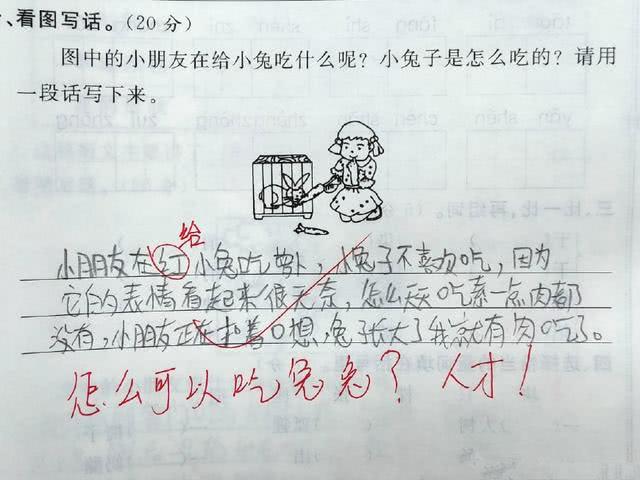 、看图写话。（20分）
图中的小朋友在给小兔吃什么呢？小兔子是怎么吃的？请用
一段话写下来。
给
小朋友在红小兔吃萝卜，小兔子不喜欢吃，因为
它的表情看起来很无奈，怎么天天吃素一点肉都
没有，小朋友正在想，兔子长大了我就有肉吃了。
怎么可以吃兔兔？人才！